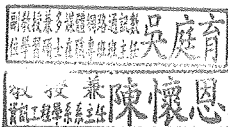 副教授兼多媒體網路通訊數
位學習碩士在職專班主任 吳庭育
教授兼
資訊工程學系系主任 陳懷恩